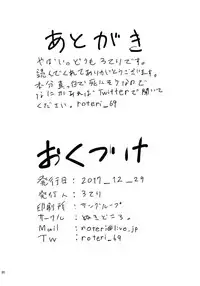 あとがき
やばい。どうも ろてりです。
読んでくれてありがとうございます。
なにかあれば Twitterで聞いて
ください。roteri_69
おくづけ
発行日:2017_12_29
発行人:ろてり
印刷所:サングループ
サークル:ぬきどころ。
Mail:roteri@live.jp
TW:roteri_69